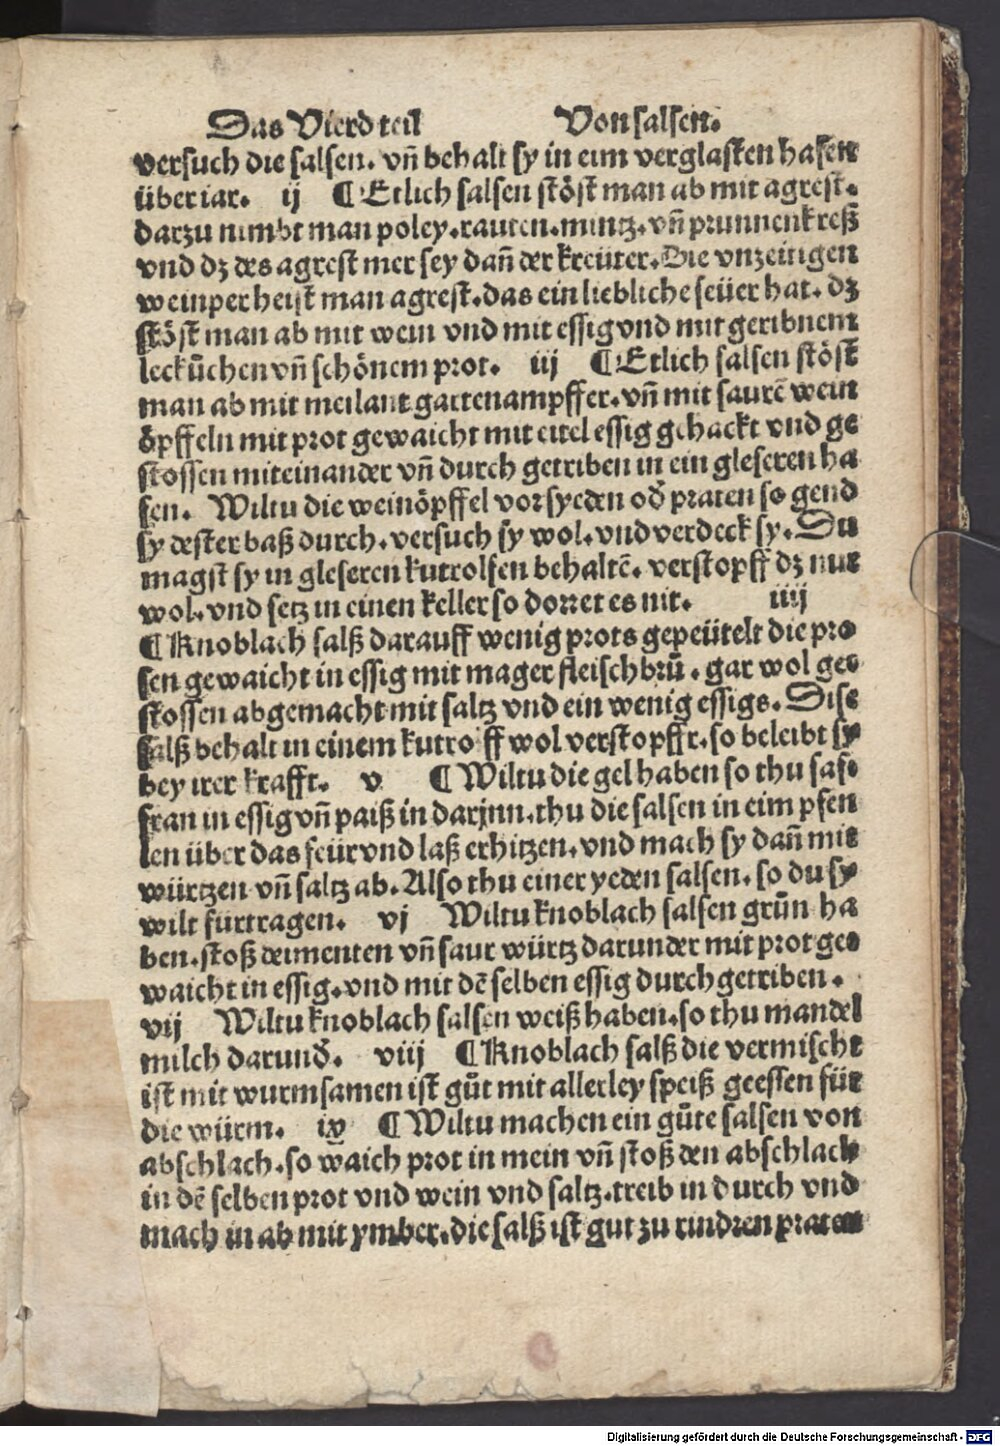 Das Vierd teil Von salsen.
versuch die salsen. vn̄ behalt sy in eim verglasten hafen
über iar. ij ¶ Etlich salsen stöst man ab mit agrest.
darzu nimbt man poley. rauten. mintz. vn̄ prunnenkreß
vnd dz des agrest mer sey dan̄ der kreüter. Die vnzeitigen
weinper heist man agrest. das ein liebliche seüer hat. dz
stöst man ab mit wein vnd mit essig vnd mit geribnem
leckůchen vn̄ schönem prot. iij ¶ Etlich salsen stöst
man ab mit meilant gartenampffer. vn̄ mit saurē wein
öpffeln mit prot gewaicht mit eitel essig gehackt vnd ge
stossen miteinander vn̄ durch getriben in ein gleseren ha
fen. Wiltu die weinöpffel vor syeden od̄ praten so gend
sy dester baß durch. versuch sy wol. vnd verdeck sy. Du
magst sy in gleseren kutrolfen behaltē. verstopff dz nur
wol. vnd setz in einen keller so dorret es nit. iiij
¶ Knoblach salß darauff wenig prots gepeütelt die pro⸗
sen gewaicht in essig mit mager fleischbrů. gar wol ge⸗
stossen abgemacht mit saltz vnd ein wenig essigs. Dise
salß behalt in einem kutroff wol verstopfft. so beleibt sy
bey irer krafft. v ¶ Wiltu die gel haben so thu saf⸗
fran in essig vn̄ paiß in darjnn. thu die salsen in eim pfen
len über das feür vnd laß erhitzen. vnd mach sy dan̄ mit
würtzen vn̄ saltz ab. Also thu einer yeden salsen. so du sy
wilt fürtragen. vj Wiltu knoblach salsen grůn ha
ben. stoß deimenten vn̄ saur würtz darunder mit prot ge⸗
waicht in essig. vnd mit dē selben essig durchgetriben.
vij Wiltu knoblach salsen weiß haben. so thu mandel
milch darund̄. viij ¶ Knoblach salß die vermischt
ist mit wurmsamen ist gůt mit allerley speiß geessen für
die würm. ix ¶ Wiltu machen ein gůte salsen von
abschlach. so waich prot in mein vn̄ stoß den abschlach
in dē selben prot vnd wein vnd saltz. treib in durch vnd
mach in ab mit ymber. die salß ist gut zu rindren praten
Digitalisierung gefördert durch die Deutsche Forschungsgemeinschaft - DFG